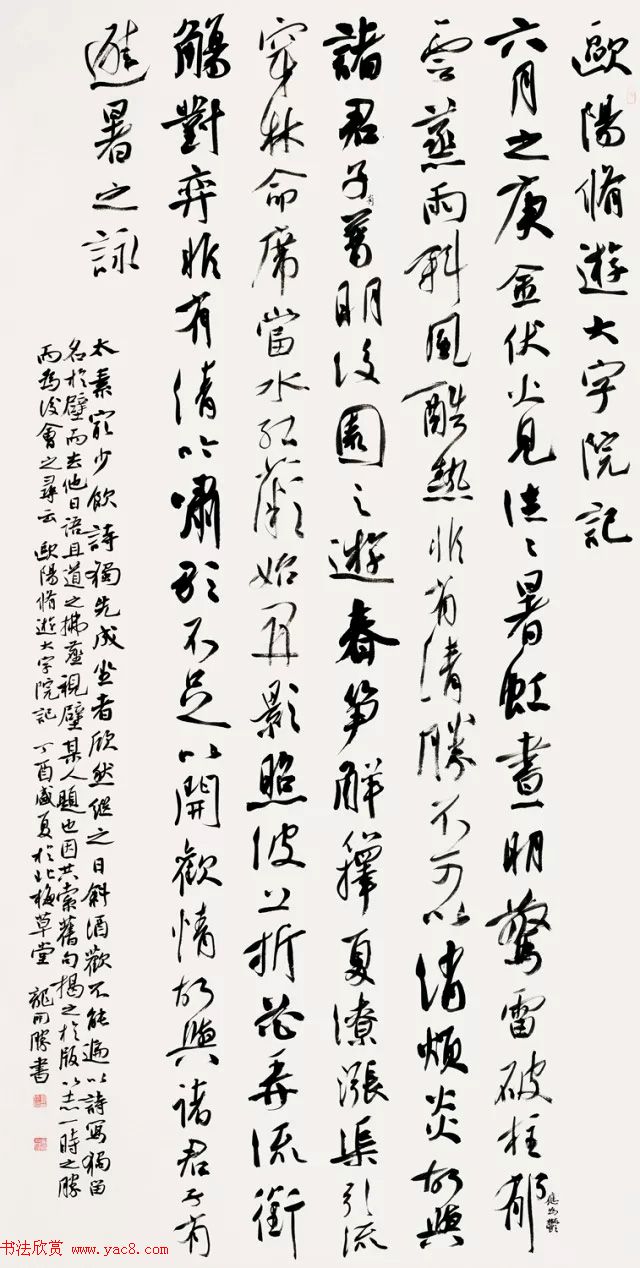 歐陽脩遊大字院記
六月之庚金伏火見往〻暑虹晝明驚雷破柱郁
應為鬱
雲蒸雨斜風酷熱非有清勝不可以消煩炎故與
諸君子有普明後園之遊春笋解籜夏潦漲渠引流
穿林命席當水紅薇始開影照波上折花弄流銜
觴對弈非有清吟嘯歌不足以開歡情故與諸君子有
避暑之詠
太素最少飲詩獨先成坐者欣然繼之日斜酒歡不能遍以詩寫獨留
名於壁而去他日語且道之拂塵視壁某人題也因共索舊句揭之於版以志一時之勝
而為後會之尋云 歐陽脩遊大字院記 丁酉盛夏於北梅草堂 龍開勝書
书法欣赏 www.yac8.com